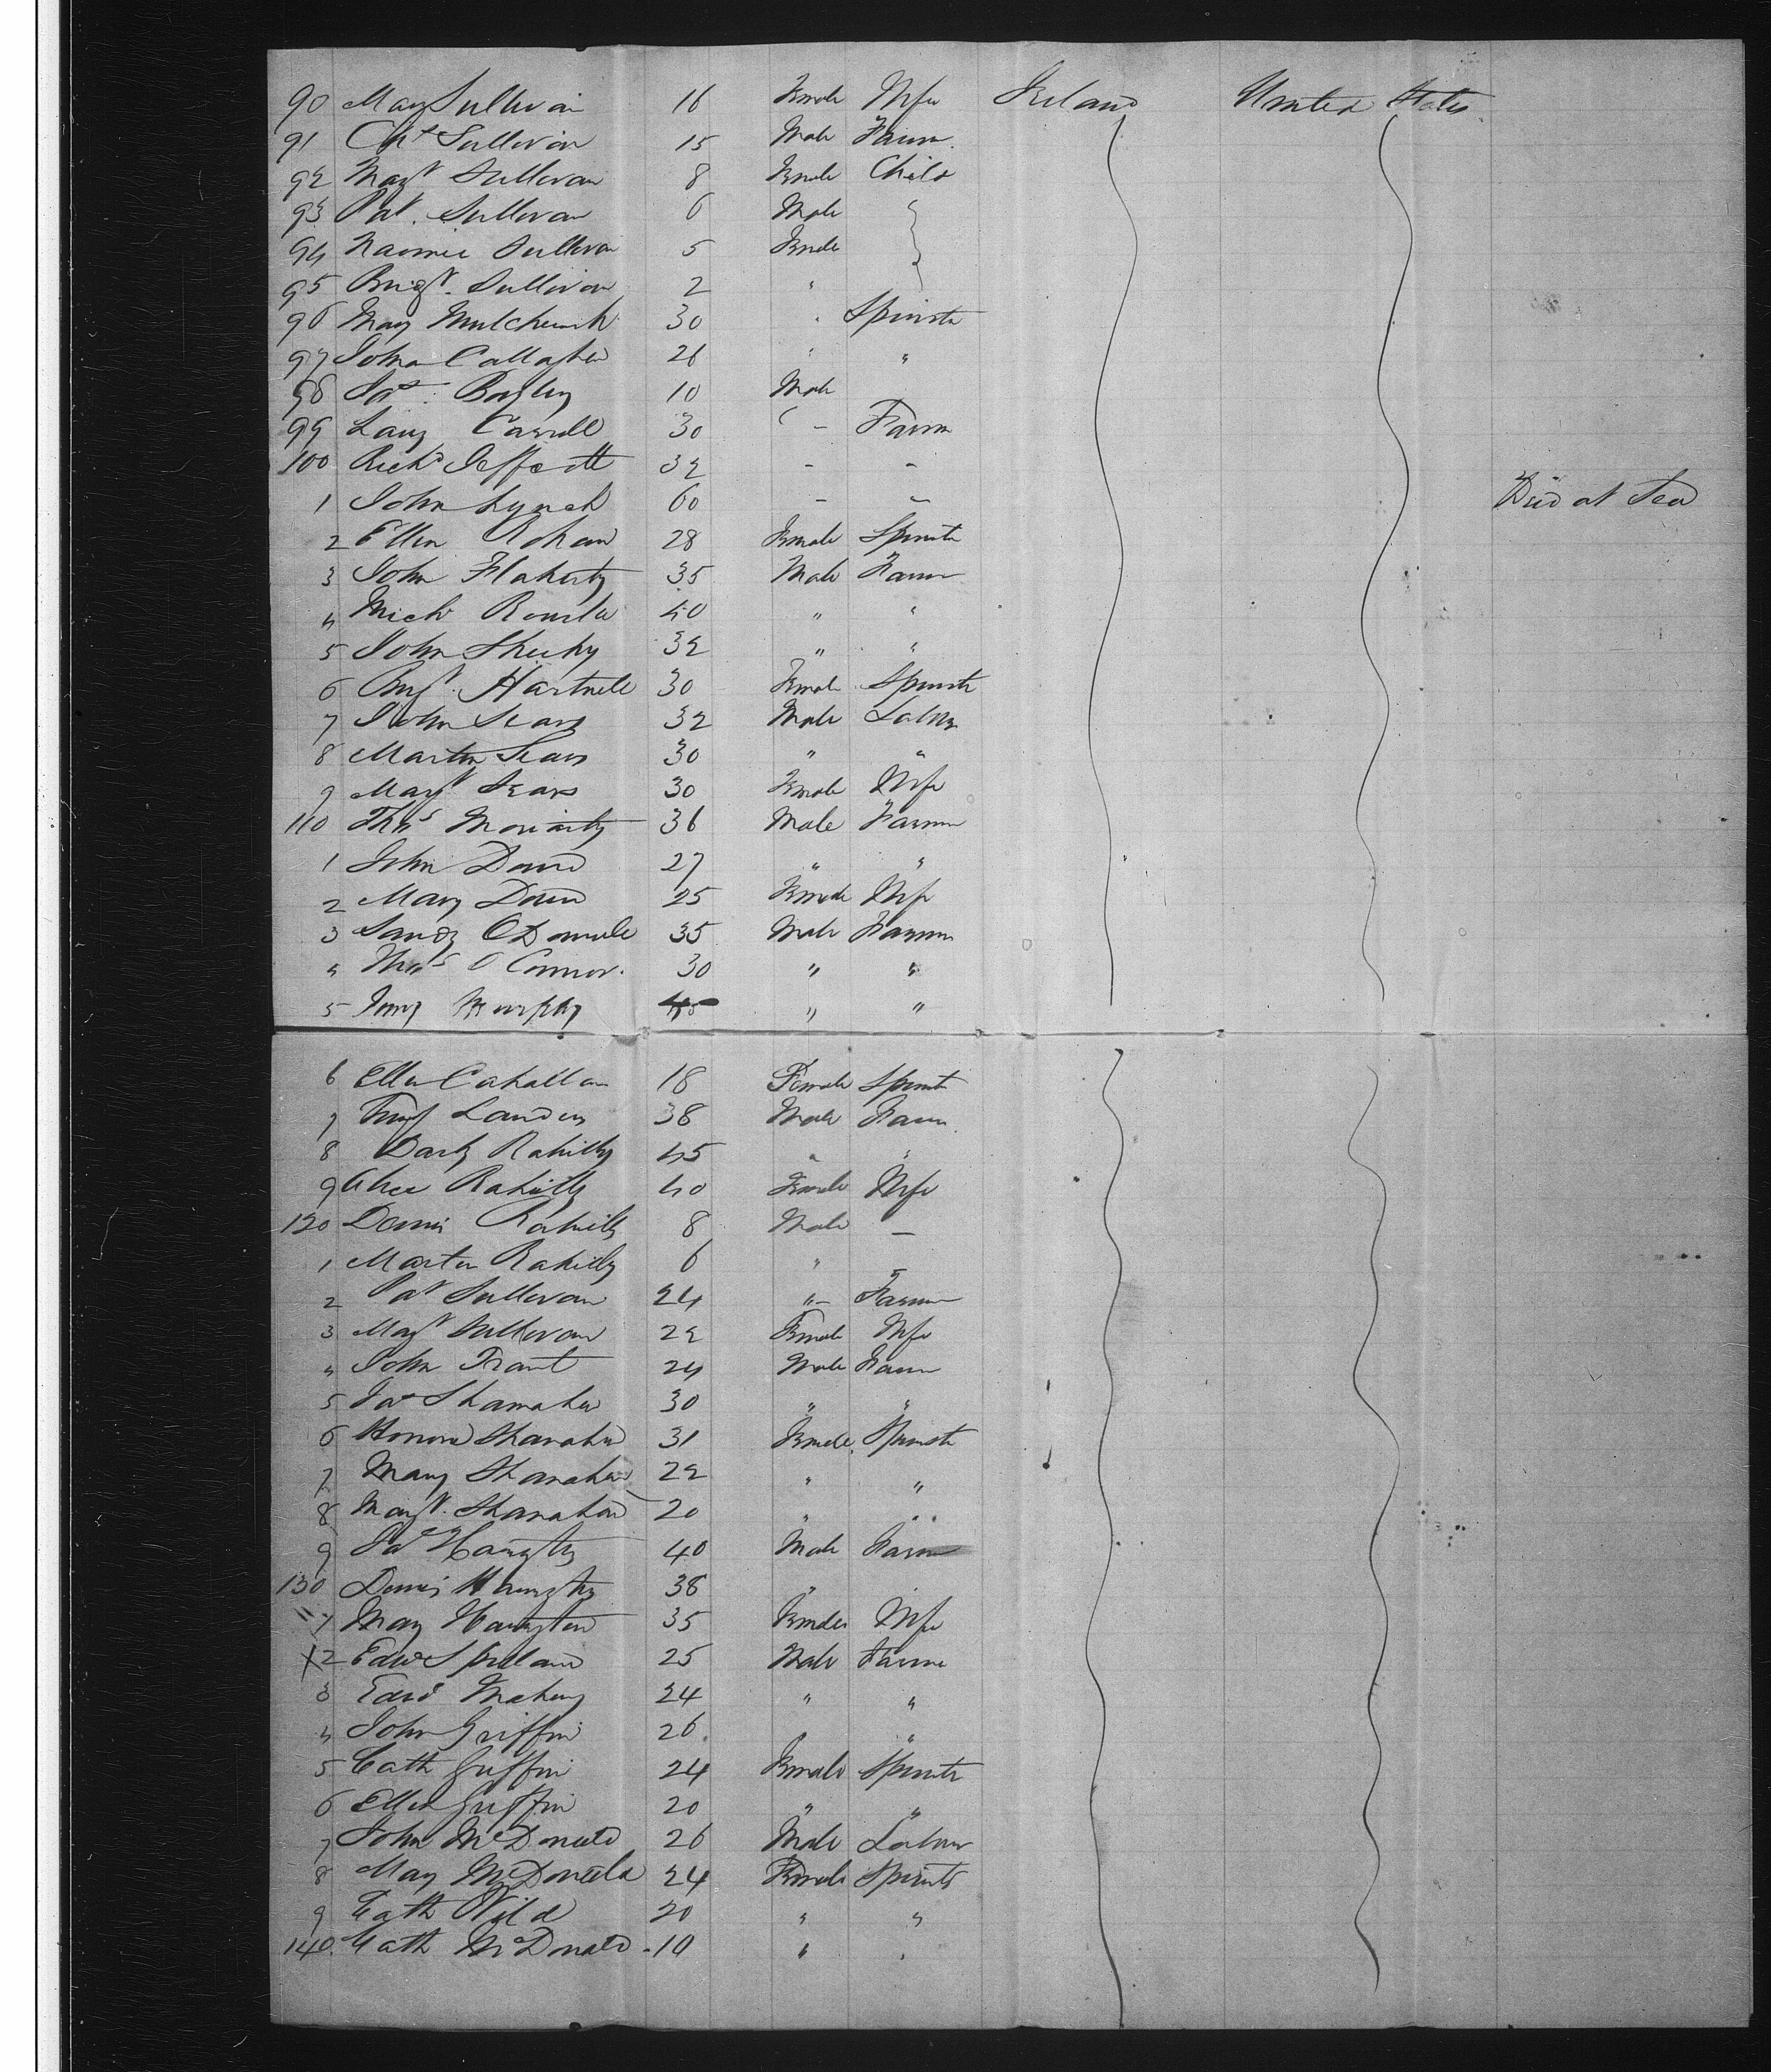 90 Mary Sullivan 16 Female Wife Ireland United States
91 Chs Sullivan 15 Male Farmr
92 Margt Sullivan 8 Female Child
93 Pat. Sullivan 6 Male
94 Sullivan 5 Female
95 Bridgt. Sullivan 2 "
96 Mary 30 " Spinster
97 John Callaghan 26 " "
98 Pat. Bagley 10 Male
99 Carroll 30 " - Farmr
100 Richd 32 - -
1 John Lynch 60 - - Died at Sea
2 Ellen Rohan 28 Female Spinster
3 John Flaherty 35 Male Farmr
4 Mich 40 " "
5 John Sheehy 32 " "
6 Hartnell 30 Female Spinster
7 John Sears 32 Male Labor
8 Martin Sears 30 " "
9 Margt Sears 30 Female Wife
110 Thos Moriarty 36 Male Farmr
1 John Dowd 27 " "
2 Mary Dowd 25 Female Wife
3 O'Donnell 35 Male Farmr
4 Thos O Connor. 30 " "
5 Murphy 45 " "
6 Ellen Cahallan 18 Female Spinster
7 Landers 38 Male Farmr
8 Darby Rahilly 45 " "
9 Alice Rahilly 40 Female Wife
120 Dennis Rahilly 8 Male —
1 Martin Rahilly 6 " —
2 Pat Sullivan 24 " - Farmr
3 Margt Sullivan 22 Female Wife
4 John Trant 24 Male Farmr
5 Pat Shanahan 30 " "
6 Honora Shanahan 31 Female Spinster
7 Mary Shanahan 22 " "
8 Margt. Shanahan 20 " "
9 40 Male Farmr
130 Dennis 38 " "
1 Mary 35 Female Wife
2 Edwd Spelane 25 Male Farmr
3 Edwd Mahony 24 " "
4 John Griffin 26 " "
5 Cath Griffin 24 Female Spinster
6 Ellen Griffin 20 " "
7 John McDonald 26 Male Labour
8 Mary McDonald 24 Female Spinster
9 Cath 20 " "
140 Cath McDonald 10 " "